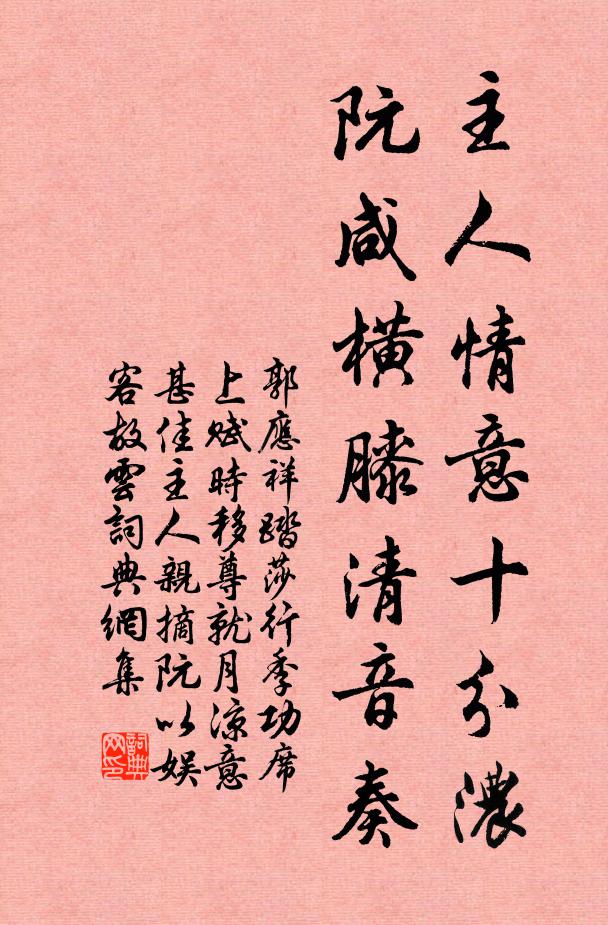 主人情意十分濃
阮咸橫膝清音奏
郭應祥踏莎行季功席
上賦時移尊就月涼意
甚佳主人親摘阮以娛
客故雲詞典網集
詞典
网印